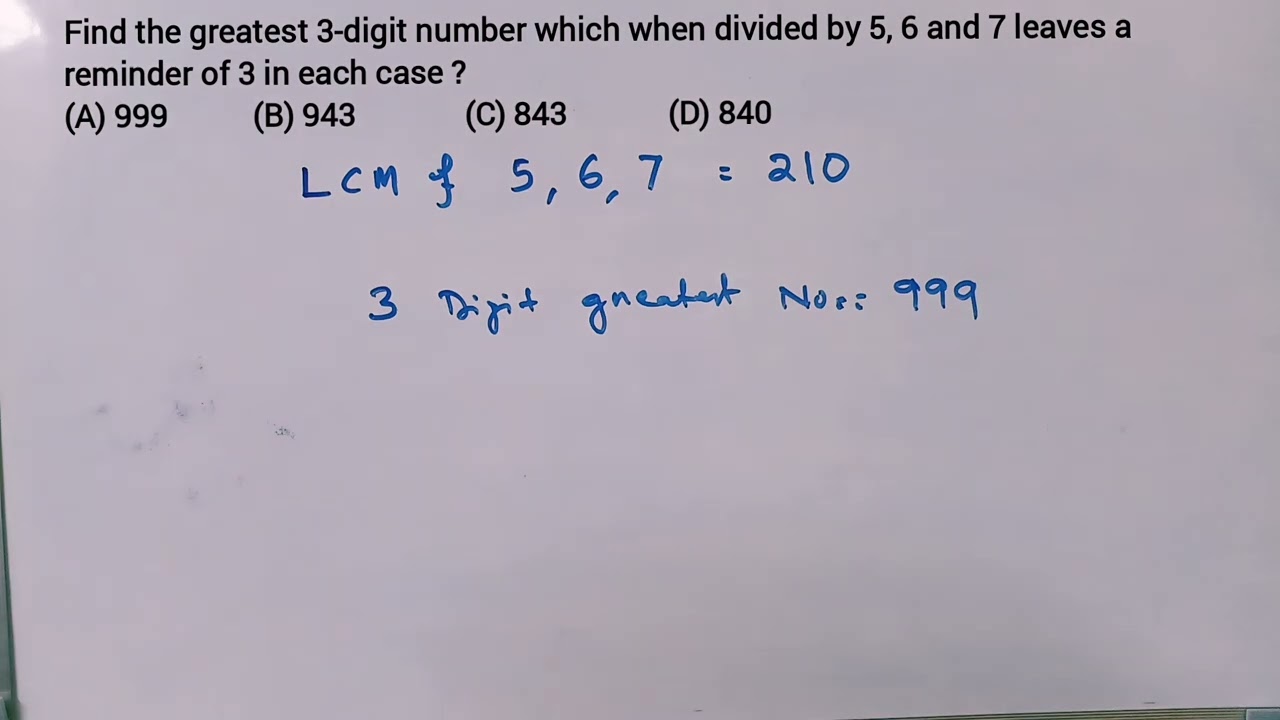 Find the greatest 3-digit number which when divided by 5, 6 and 7 leaves a
reminder of 3 in each case ?
(A) 999 (B) 943 (C) 843 (D) 840
LCM of 5, 6, 7 = 210
3 Digit greatest No:: 999